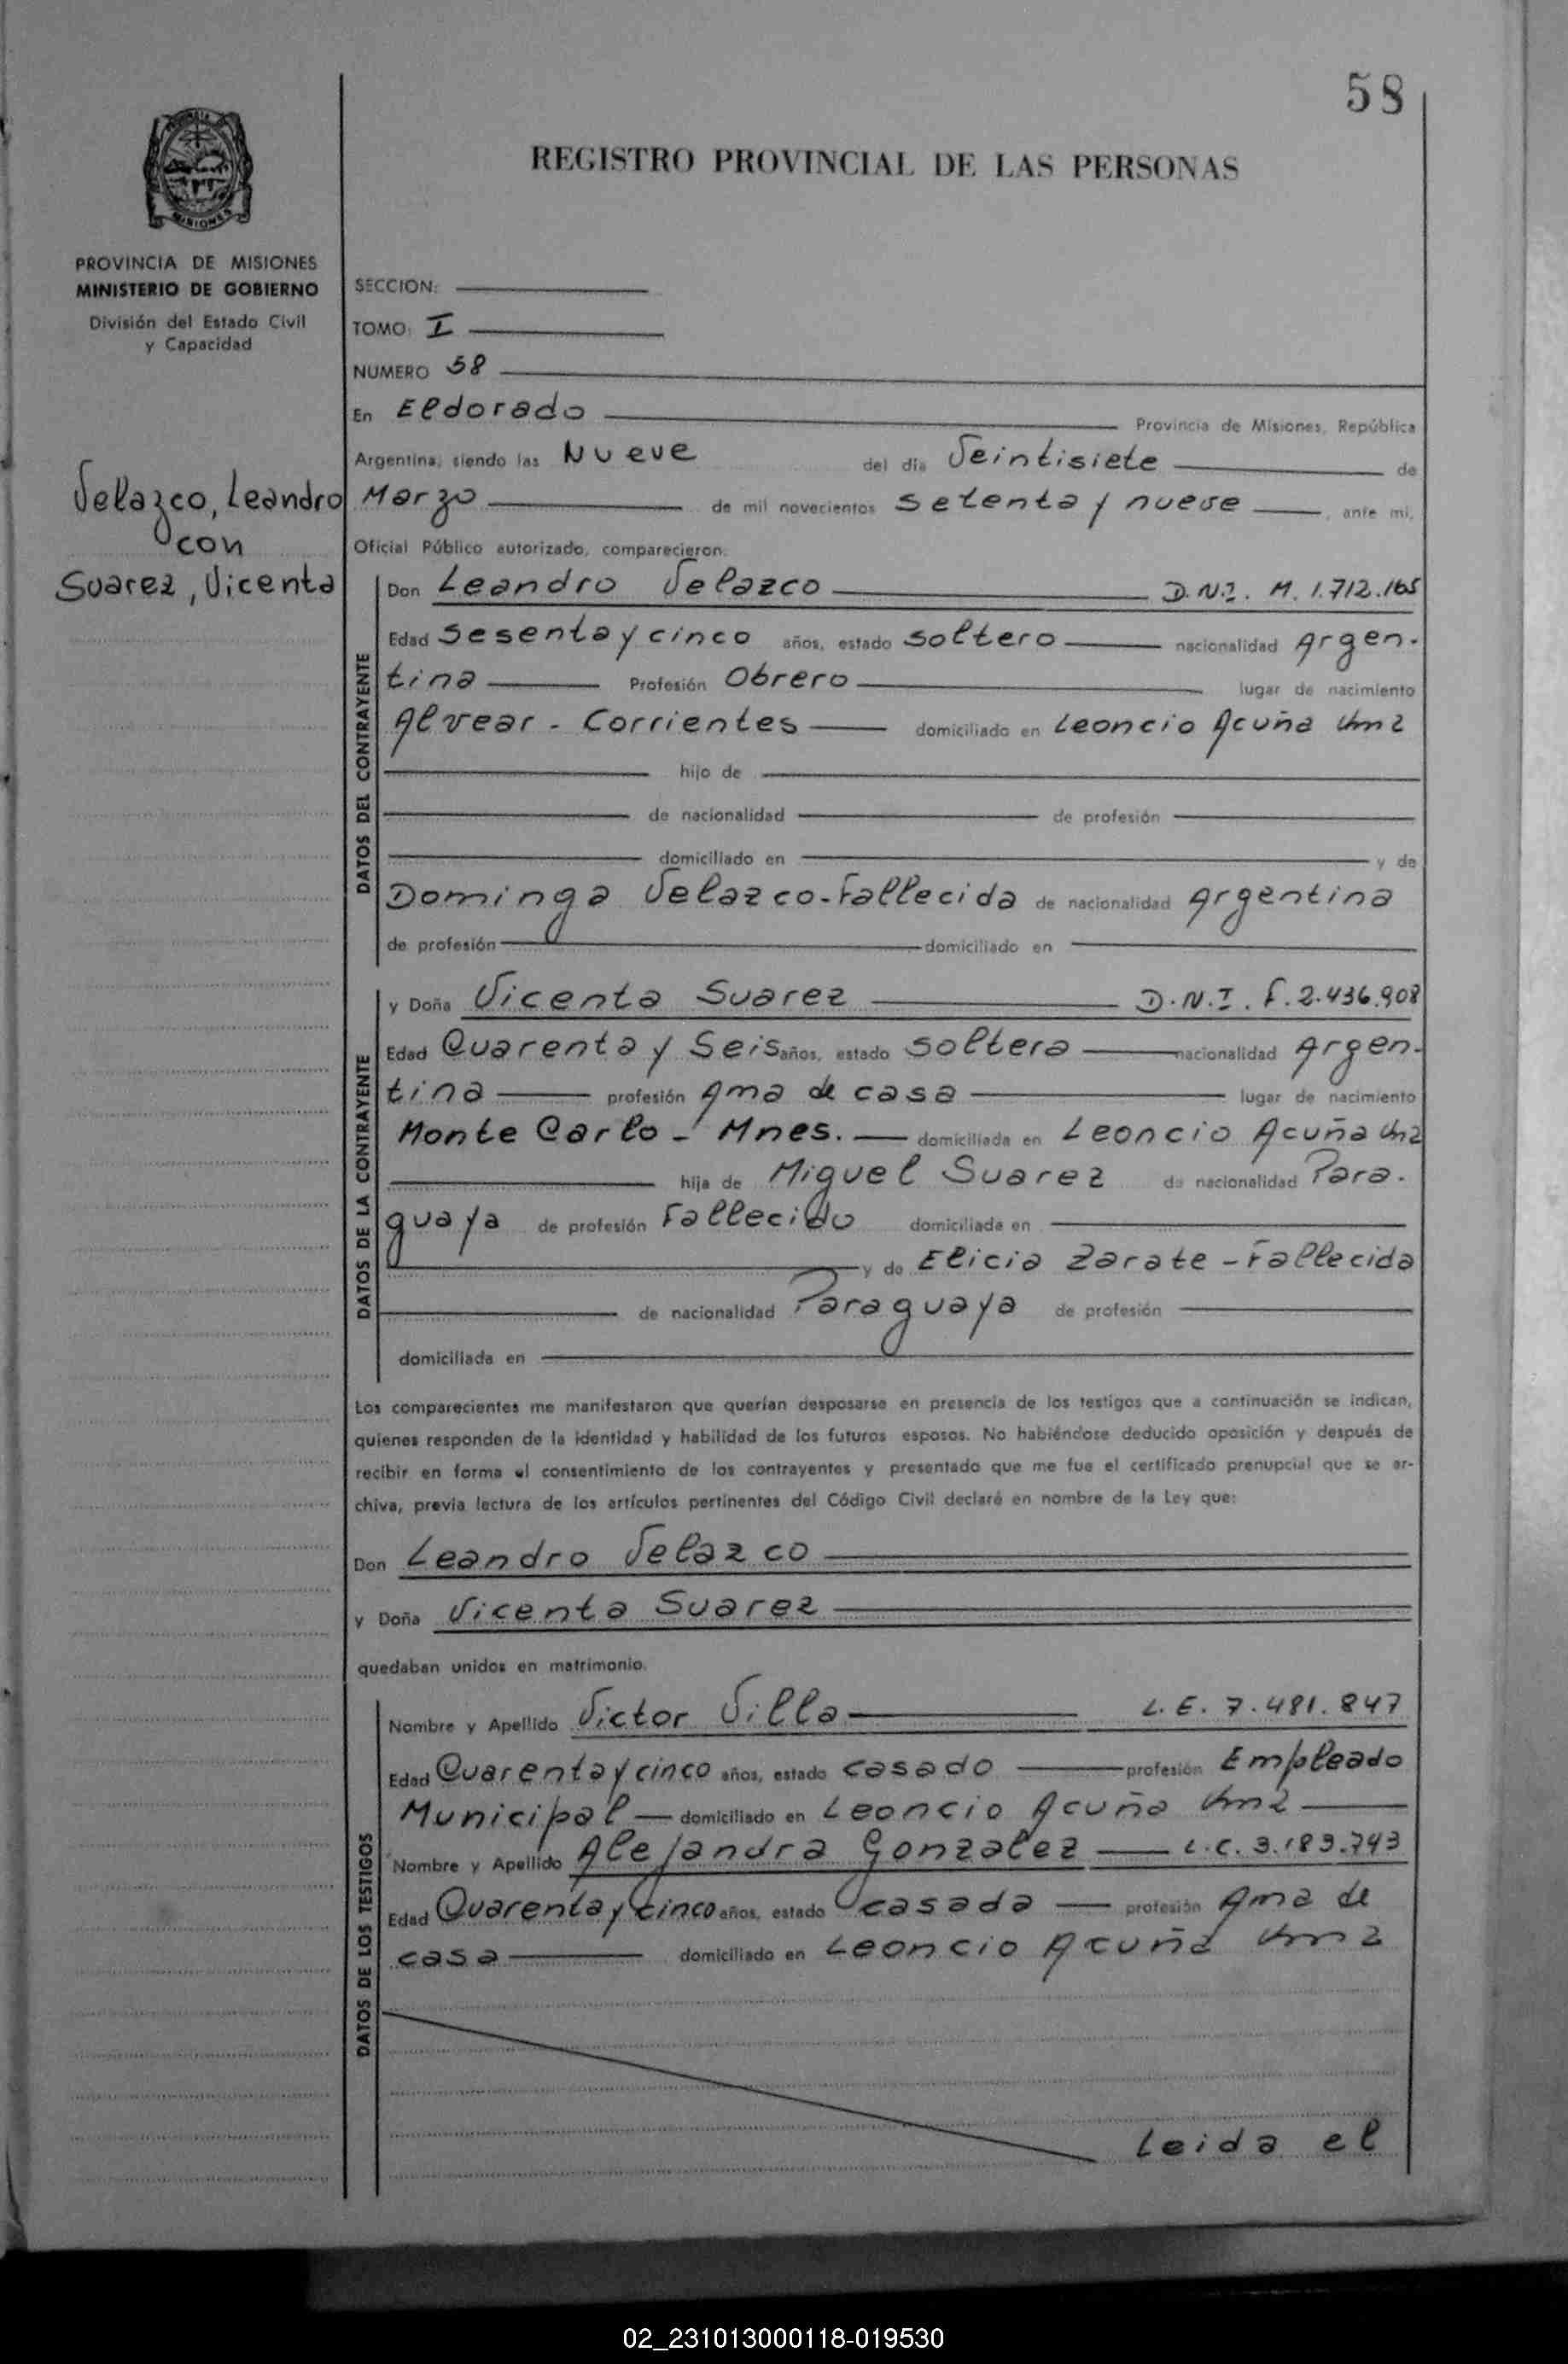 58
REGISTRO PROVINCIAL DE LAS PERSONAS
MISIONES
PROVINCIA DE MISIONES
MINISTERIO DE GOBIERNO
División del Estado Civil
y Capacidad
Velazco, Leandro
con
Suarez, Vicenta
SECCION:
TOMO: I
NUMERO 58
En Eldorado Provincia de Misiones, República
Argentina, siendo las Nueve del día Veintisiete de
Marzo de mil novecientos setenta y nueve, ante mi,
Oficial Público autorizado, comparecieron:
DATOS DEL CONTRAYENTE
Don Leandro Velazco D.N.I. M. 1.712.165
Edad Sesenta y cinco años, estado soltero nacionalidad Argen-
tina Profesión Obrero lugar de nacimiento
Alvear - Corrientes domiciliado en Leoncio Acuña Km 2
hijo de
de nacionalidad de profesión
domiciliado en y de
Dominga Velazco - Fallecida de nacionalidad Argentina
de profesión domiciliado en
DATOS DE LA CONTRAYENTE
y Doña Vicenta Suarez D.N.I. F. 2.436.908
Edad Quarenta y Seis años, estado soltera nacionalidad Argen-
tina profesión Ama de casa lugar de nacimiento
Monte Carlo - Mnes. domiciliada en Leoncio Acuña Km 2
hija de Miguel Suarez de nacionalidad Para-
guaya de profesión Fallecido domiciliada en
y de Elicia Zarate - Fallecida
de nacionalidad Paraguaya de profesión
domiciliada en
Los comparecientes me manifestaron que querían desposarse en presencia de los testigos que a continuación se indican,
quienes responden de la identidad y habilidad de los futuros esposos. No habiéndose deducido oposición y después de
recibir en forma el consentimiento de los contrayentes y presentado que me fue el certificado prenupcial que se ar-
chiva, previa lectura de los artículos pertinentes del Código Civil declaré en nombre de la Ley que:
Don Leandro Velazco
y Doña Vicenta Suarez
quedaban unidos en matrimonio.
DATOS DE LOS TESTIGOS
Nombre y Apellido Victor Villa L.E. 7.481.847
Edad Quarenta y cinco años, estado casado profesión Empleado
Municipal domiciliado en Leoncio Acuña Km 2
Nombre y Apellido Alejandra Gonzalez L.C. 3.183.743
Edad Quarenta y cinco años, estado casada profesión Ama de
casa domiciliado en Leoncio Acuña Km 2
Leida el
02_231013000118-019530